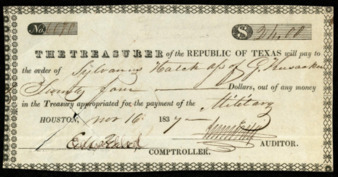 No.
$ 24.00
THE TREASURER of the REPUBLIC OF TEXAS will pay to
the order of Sylvanus Hatch
Twenty four Dollars, out of any money
in the Treasury appropriated for the payment of the Military
HOUSTON, Nov 16 1837
AUDITOR.
COMPTROLLER.